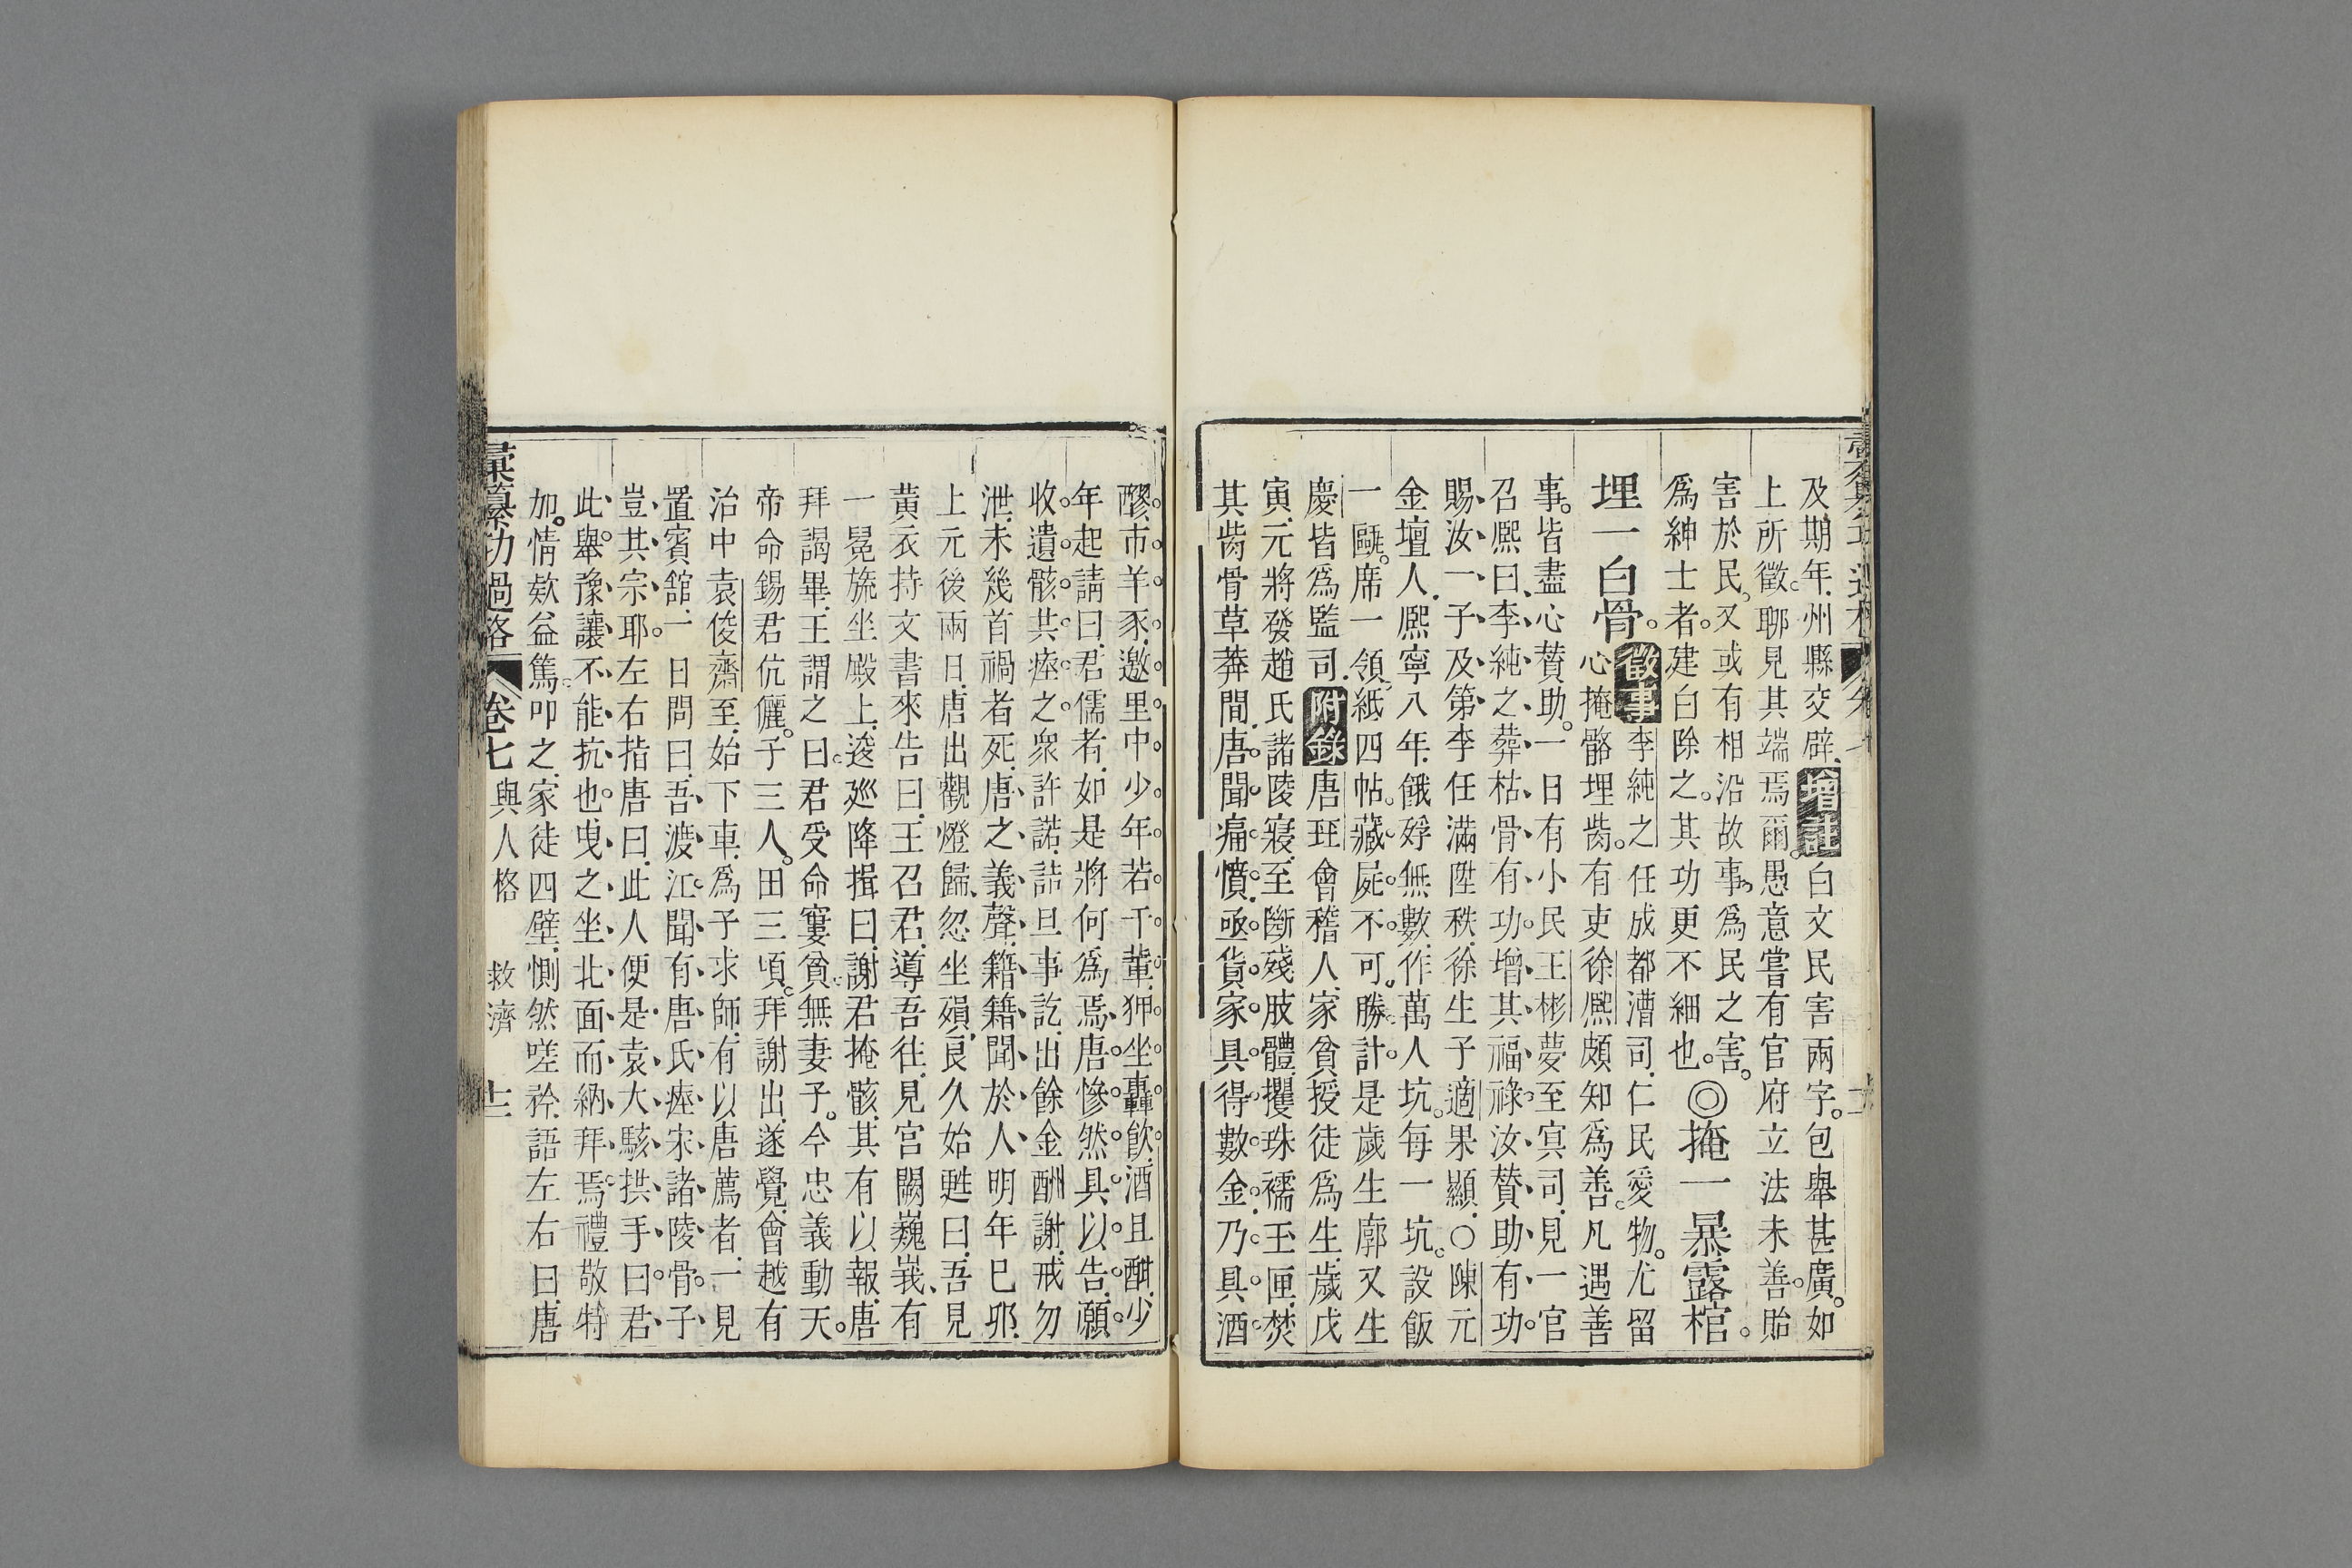 及期年州縣交辟增註白文民害兩字包舉甚廣如
上所徵聊見其端焉爾愚意嘗有官府立法未善貽
害於民又或有相沿故事為民之害
為紳士者建白除之其功更不細也◎掩一暴露棺
埋一白骨徵事李純之任成都漕司仁民愛物尤留
心掩骼埋胔有吏徐熈頗知為善凡遇善
事皆盡心賛助一日有小民王彬夢至㝠司見一官
召熈曰李純之葬枯骨有功增其福祿汝賛助有功
賜汝一子及第李任滿陞秩徐生子適果顯○陳元
金壇人熈寧八年餓殍無數作萬人坑每一坑設飯
一甌席一領紙四帖藏屍不可勝計是歲生廓又生
慶皆為監司附錄唐珏會稽人家貧授徒為生歲戊
寅元將發趙氏諸陵寢至斷殘肢體攫珠襦玉匣焚
其胔骨草莽間唐聞痛憤亟貨家具得數金乃具酒
醪市羊豕邀里中少年若干輩狎坐轟飲酒且酣少
年起請曰君儒者如是將何為焉唐慘然具以告願
收遺骸共瘞之衆許諾詰旦事訖出餘金酬謝戒勿
泄未幾首禍者死唐之義聲籍籍聞於人明年已夘
上元後兩日唐出觀燈歸忽坐殞良久始甦曰吾見
黃衣持文書來告曰王召君導吾往見宮闕巍峩有
一冕旒坐殿上逡廵降揖曰謝君掩骸其有以報唐
拜謁畢王謂之曰君受命窶貧無妻子今忠義動天
帝命錫君伉儷子三人田三頃拜謝出遂覺會越有
治中袁俊齋至始下車為子求師有以唐薦者一見
置賓舘一日問曰吾渡江聞有唐氏瘞宋諸陵骨子
豈其宗耶左右指唐曰此人便是袁大駭拱手曰君
此舉豫讓不能抗也曳之坐北面而納拜焉禮敬特
加情欵益篤叩之家徒四壁惻然嗟矜語左右曰唐
彙纂功過格　卷七　與人格　救濟　十二